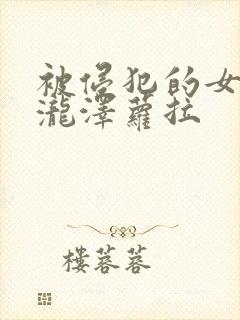 被侵犯的女
瀧澤蘿拉
樓蓉蓉